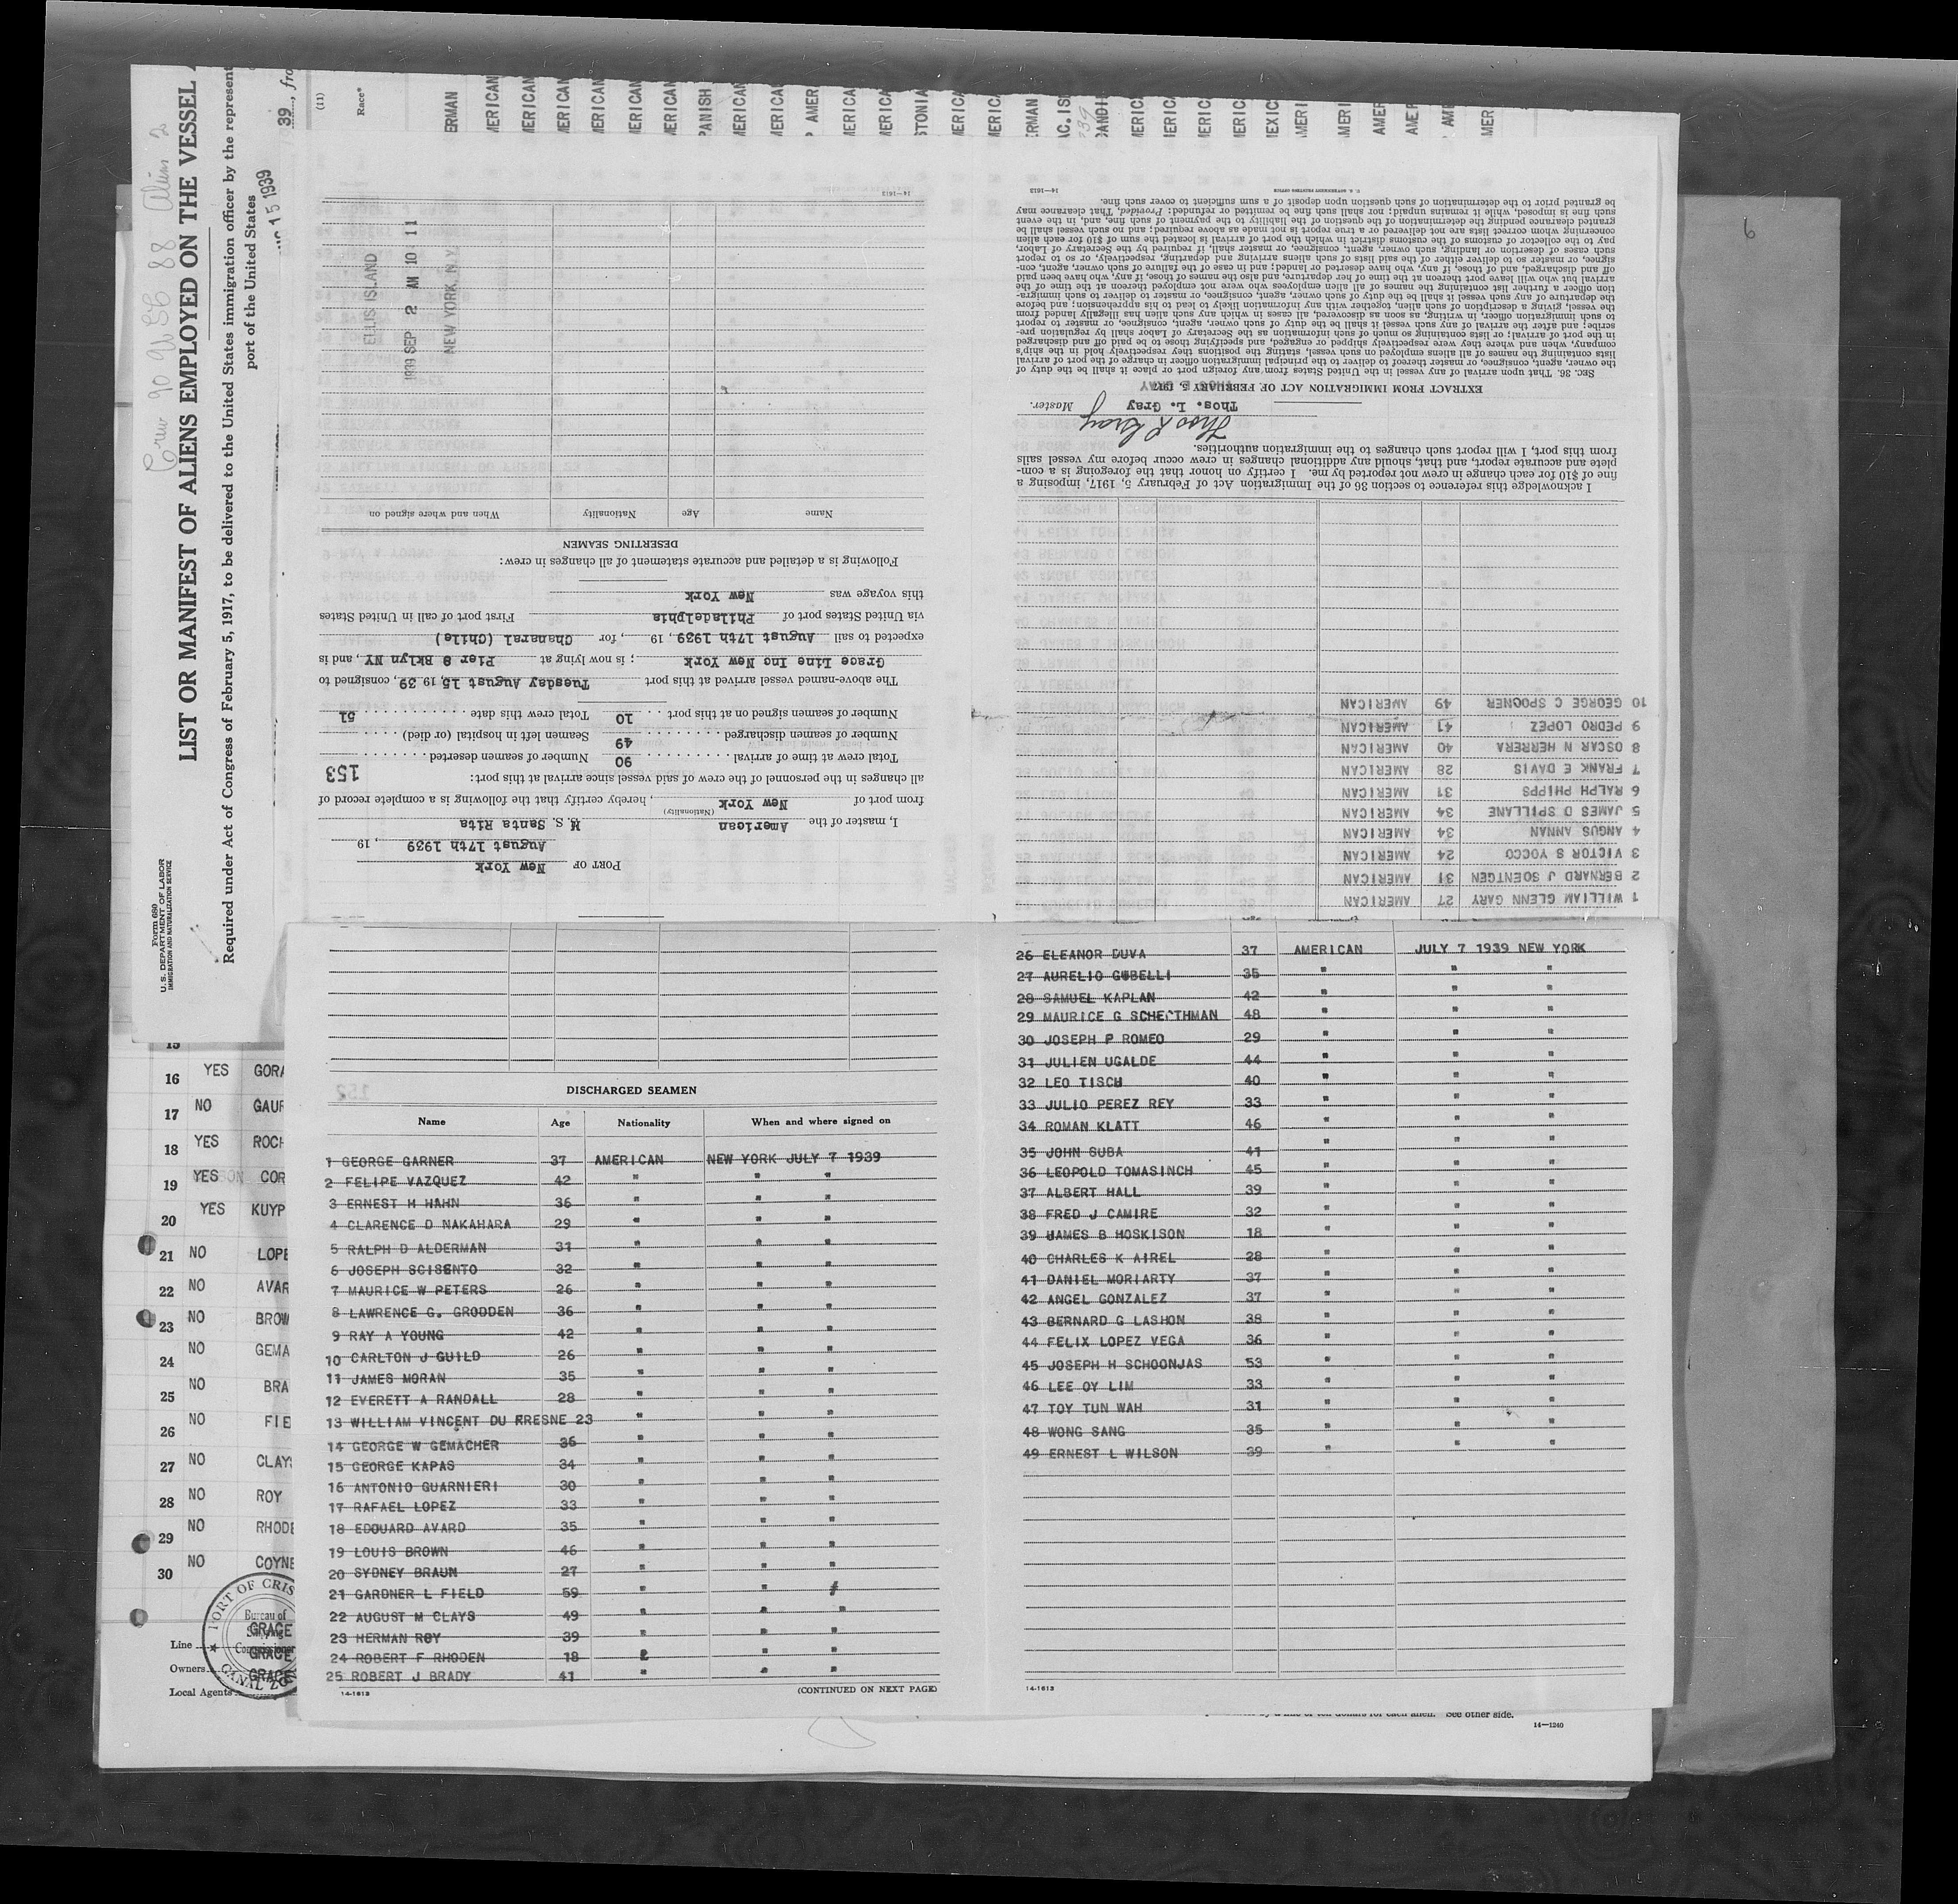 Crew 90 USC 88 Alien 2
LIST OR MANIFEST OF ALIENS EMPLOYED ON THE VESSEL
Required under Act of Congress of February 5, 1917, to be delivered to the United States immigration officer by the represent
port of the United States
15 1939
39, fro
Form 680
U. S. DEPARTMENT OF LABOR
IMMIGRATION AND NATURALIZATION SERVICE
(11)
Race*
ERMAN
MERICAN
MERICAN
MERICAN
MERICAN
MERICAN
MERICAN
PANISH
MERICAN
MERICAN
P AMER
MERICA
MERICA
STONIA
MERICA
MERICA
ERMAN
AC.IS
CANDI
MERICA
MERICA
MERIC
MERIC
MEXIC
AMERI
AMERI
AMER
AMER
AM
MER
6
PORT OF New York
August 17th 1939, 19
I, master of the American M. S. Santa Rita
(Nationality)
from port of New York, hereby certify that the following is a complete record of
all changes in the personnel of the crew of said vessel since arrival at this port:
153
Total crew at time of arrival 90 Number of seamen deserted
Number of seamen discharged 49 Seamen left in hospital (or died)
Number of seamen signed on at this port 10 Total crew this date 51
The above-named vessel arrived at this port Tuesday August 15, 19 39, consigned to
Grace Line Inc New York; is now lying at Pier 9 Bklyn NY, and is
expected to sail August 17th 1939, 19, for Chanaral (Chile)
via United States port of Philadelphia First port of call in United States
this voyage was New York
Following is a detailed and accurate statement of all changes in crew:
DESERTING SEAMEN
Name Age Nationality When and where signed on
ELLIS ISLAND
1939 SEP 2 AM 10 11
NEW YORK, N.Y.
14—1613
1 WILLIAM GLENN GARY 27 AMERICAN
2 BERNARD J SOENTGEN 31 AMERICAN
3 VICTOR S YOCCO 24 AMERICAN
4 ANGUS ANNAN 34 AMERICAN
5 JAMES D SPILLANE 34 AMERICAN
6 RALPH PHIPPS 31 AMERICAN
7 FRANK E DAVIS 28 AMERICAN
8 OSCAR N HERRERA 40 AMERICAN
9 PEDRO LOPEZ 41 AMERICAN
10 GEORGE C SPOONER 49 AMERICAN
I acknowledge this reference to section 36 of the Immigration Act of February 5, 1917, imposing a
fine of $10 for each change in crew not reported by me. I certify on honor that the foregoing is a com-
plete and accurate report, and that, should any additional changes in crew occur before my vessel sails
from this port, I will report such changes to the immigration authorities.
Thos L Gray
Thos. L. Gray Master.
EXTRACT FROM IMMIGRATION ACT OF FEBRUARY 5, 1917
SEC. 36. That upon arrival of any vessel in the United States from any foreign port or place it shall be the duty of
the owner, agent, consignee, or master thereof to deliver to the principal immigration officer in charge of the port of arrival
lists containing the names of all aliens employed on such vessel, stating the positions they respectively hold in the ship's
company, when and where they were respectively shipped or engaged, and specifying those to be paid off and discharged
in the port of arrival; or lists containing so much of such information as the Secretary of Labor shall by regulation pre-
scribe; and after the arrival of any such vessel it shall be the duty of such owner, agent, consignee, or master to report
to such immigration officer, in writing, as soon as discovered, all cases in which any such alien has illegally landed from
the vessel, giving a description of such alien, together with any information likely to lead to his apprehension; and before
the departure of any such vessel it shall be the duty of such owner, agent, consignee, or master to deliver to such immigra-
tion officer a further list containing the names of all alien employees who were not employed thereon at the time of the
arrival but who will leave port thereon at the time of her departure, and also the names of those, if any, who have been paid
off and discharged, and of those, if any, who have deserted or landed; and in case of the failure of such owner, agent, con-
signee, or master so to deliver either of the said lists of such aliens arriving and departing, respectively, or so to report
such cases of desertion or landing, such owner, agent, consignee, or master shall, if required by the Secretary of Labor,
pay to the collector of customs of the customs district in which the port of arrival is located the sum of $10 for each alien
concerning whom correct lists are not delivered or a true report is not made as above required; and no such vessel shall be
granted clearance pending the determination of the question of the liability to the payment of such fine, and, in the event
such fine is imposed, while it remains unpaid; nor shall such fine be remitted or refunded: Provided, That clearance may
be granted prior to the determination of such question upon deposit of a sum sufficient to cover such fine.
U. S. GOVERNMENT PRINTING OFFICE 14—1613
DISCHARGED SEAMEN
Name Age Nationality When and where signed on
1 GEORGE GARNER 37 AMERICAN NEW YORK JULY 7 1939
2 FELIPE VAZQUEZ 42 " " "
3 ERNEST H HAHN 36 " " "
4 CLARENCE D NAKAHARA 29 " " "
5 RALPH D ALDERMAN 31 " " "
6 JOSEPH SCISENTO 32 " " "
7 MAURICE W PETERS 26 " " "
8 LAWRENCE G. GRODDEN 36 " " "
9 RAY A YOUNG 42 " " "
10 CARLTON J GUILD 26 " " "
11 JAMES MORAN 35 " " "
12 EVERETT A RANDALL 28 " " "
13 WILLIAM VINCENT DU FRESNE 23 " " "
14 GEORGE W GEMACHER 36 " " "
15 GEORGE KAPAS 34 " " "
16 ANTONIO GUARNIERI 30 " " "
17 RAFAEL LOPEZ 33 " " "
18 EDOUARD AVARD 35 " " "
19 LOUIS BROWN 46 " " "
20 SYDNEY BRAUN 27 " " "
21 GARDNER L FIELD 59 " " "
22 AUGUST M CLAYS 49 " " "
23 HERMAN ROY 39 " " "
24 ROBERT F RHODEN 18 " " "
25 ROBERT J BRADY 41 " " "
14-1613 (CONTINUED ON NEXT PAGE)
26 ELEANOR DUVA 37 AMERICAN JULY 7 1939 NEW YORK
27 AURELIO GUBELLI 35 " " "
28 SAMUEL KAPLAN 42 " " "
29 MAURICE G SCHECTHMAN 48 " " "
30 JOSEPH P ROMEO 29 " " "
31 JULIEN UGALDE 44 " " "
32 LEO TISCH 40 " " "
33 JULIO PEREZ REY 33 " " "
34 ROMAN KLATT 46 " " "
35 JOHN SUBA 41 " " "
36 LEOPOLD TOMASINCH 45 " " "
37 ALBERT HALL 39 " " "
38 FRED J CAMIRE 32 " " "
39 JAMES B HOSKISON 18 " " "
40 CHARLES K AIREL 28 " " "
41 DANIEL MORIARTY 37 " " "
42 ANGEL GONZALEZ 37 " " "
43 BERNARD G LASHON 38 " " "
44 FELIX LOPEZ VEGA 36 " " "
45 JOSEPH H SCHOONJAS 53 " " "
46 LEE OY LIM 33 " " "
47 TOY TUN WAH 31 " " "
48 WONG SANG 35 " " "
49 ERNEST L WILSON 39 " " "
14-1613
15
16 YES GORA
17 NO GAUR
18 YES ROCH
19 YES COR
20 YES KUYP
21 NO LOPE
22 NO AVAR
23 NO BROW
24 NO GEMA
25 NO BRA
26 NO FIE
27 NO CLAYS
28 NO ROY
29 NO RHODE
30 NO COYNE
PORT OF CRIS
Bureau of
CANAL ZO
Line GRACE
Owners GRACE
Local Agents GRACE
See other side.
14—1240